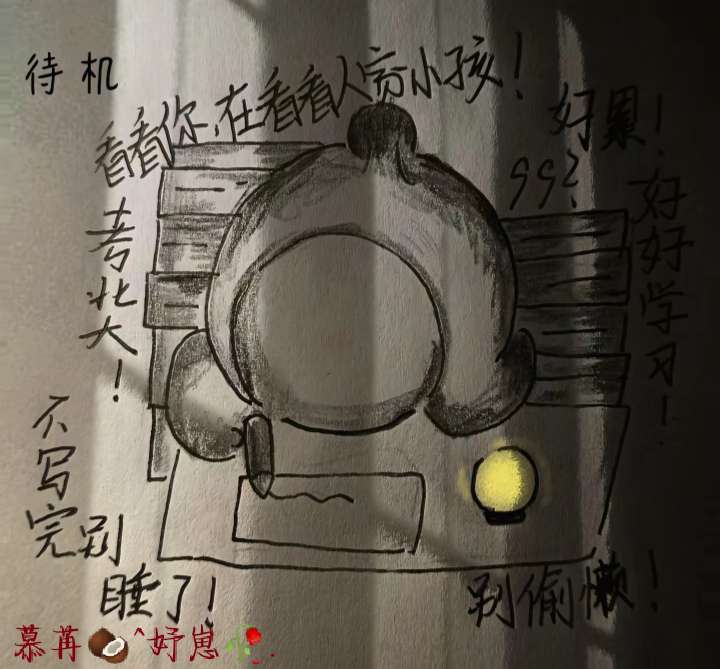 待机
看看你，在看看人家小孩！
好累！
99?
考北大！
好好学习！
不写完别睡了！
别偷懒！
慕苒^妤崽